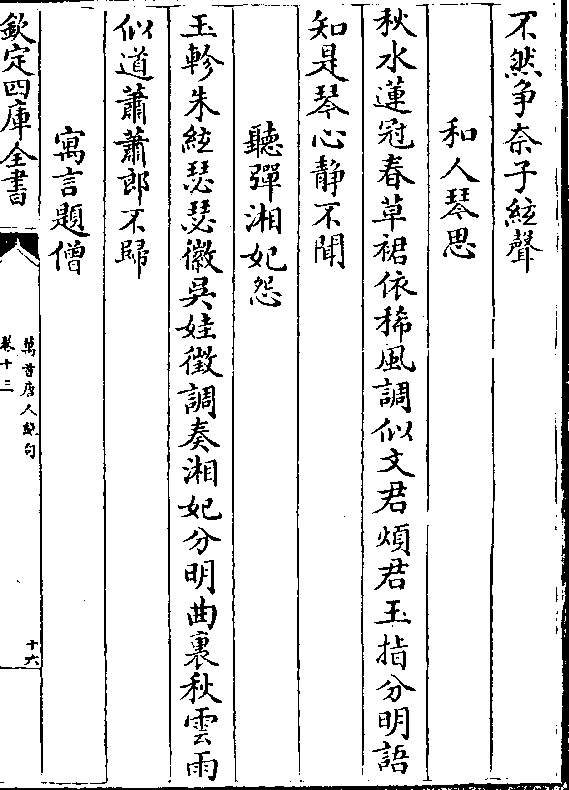 不然争奈子絃聲
和人琴思
秋水蓮冠春草裙依稀風調似文君煩君玉指分明語
知是琴心静不聞
聽彈湘妃怨
玉軫朱絃瑟瑟徽吳娃徵調奏湘妃分明曲裏秋雲雨
似道蕭蕭郎不歸
寓言題僧
欽定四庫全書
萬首唐人絶句
卷十三
十六